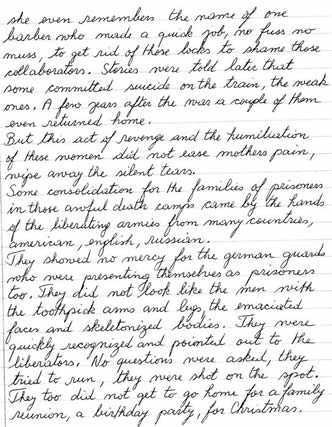 she even remembers the name of one
barber who made a quick job, no fuss no
muss, to get rid of those locks to shame those
collaborators. Stories were told later that
some committed suicide on the train, the weak
ones. A few years after the war a couple of them
even returned home.
But this act of revenge and the humiliation
of these women did not ease mothers pain,
wipe away the silent tears.
Some consolidation for the families of prisoners
in those awful death camps came by the hands
of the liberating armies from many countries,
american, english, russian.
They showed no mercy for the german guards
who were presenting themselves as prisoners
too. They did not look like the men with
the toothpick arms and legs, the emaciated
faces and skeletonized bodies. They were
quickly recognized and pointed out to the
liberators. No questions were asked, they
tried to run, they were shot on the spot.
They too did not get to go home for a family
reunion, a birthday party, for Christmas.